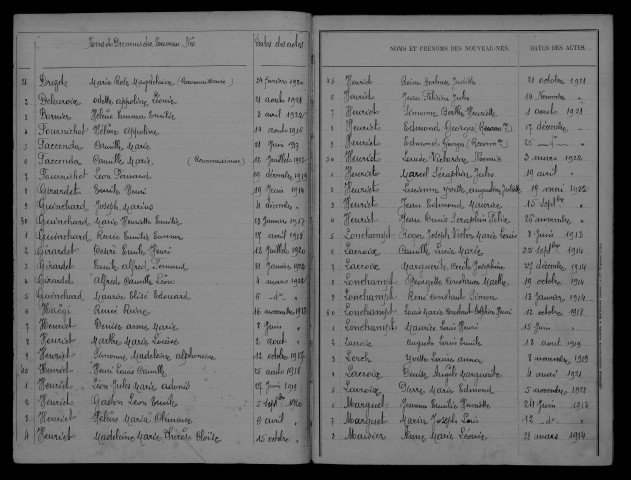 Noms et Prénoms des Nouveau-Nés Dates des actes
21 Drezet Marie Rose Magdeleine (Reconnaissance) 24 février 1920
2 Delacroix Odette Appoline Léonie 21 août 1921
3 Bornier Hélène Emma Emilie 2 avril 1924
4 Fournichot Hélène Appoline 19 août 1916
5 Pacconda Camille Marie 21 juin 1913
6 Pacconda Camille Marie (Reconnaissance) 12 juillet 1913
7 Fournichot Léon Fernand 19 décembre 1919
8 Girardet Emile Henri 19 juin 1914
9 Guinchard Joseph Marius 4 décembre "
30 Guinchard Marie Henriette Emilie 23 janvier 1917
1 Guinchard Renée Emilie Emma 27 avril 1918
2 Girardet Henri Emile Henri 12 juillet 1920
3 Girardet Emile Alfred Fernand 31 janvier 1922
4 Girardet Alfred Camille Léon 4 mars 1921
5 Guinchard Maurice Elisé Edouard 6 -d°- "
6 Haëgi Renée Reine 16 novembre 1913
7 Henriet Denise Anne Marie 8 juin "
8 Henriet Marthe Marie Louise 2 août "
9 Henriet Simonne Madeleine Alphonsine 12 octobre 1917
40 Henriet Henri Louis Camille 25 août 1918
1 Henriet Léon Jules Marie Adonis 27 juin 1919
2 Henriet Gaston Léon Emile 5 septbre 1920
3 Henriet Hélène Maria Clémence 6 avril "
4 Henriet Madeleine Marie Thérèse Eloïse 15 octobre "
NOMS ET PRÉNOMS DES NOUVEAU-NÉS. DATES DES ACTES.
45 Henriet Reine Judith 21 octobre 1921
6 Henriet Jean Félicien Jules 14 Novembre "
7 Henriet Simonne Berthe Henriette 1 août 1921
8 Henriet Edmond Georges (Reconn ce) 17 décembre "
9 Henriet Edmond Georges (Reconn ce) 25 -d°- "
50 Henriet Louise Victorine Léonie 3 mars 1922
1 Henriet Marcel Séraphin Jules 19 avril "
2 Henriet Lucienne Yvette Augustine Juliette 19 mai 1922
3 Henriet Jean Edmond Maurice 15 Septbre "
4 Henriet Jean Louis Séraphin Félix 26 novembre "
5 Lonchampt Roger Joseph Victor Marie Louis 8 juin 1913
6 Lacroix Camille Lucie Marie 25 septbre 1914
7 Lacroix Marguerite Cécile Joséphine 27 décembre 1914
8 Lonchampt Georgette Constance Marthe 19 octobre 1914
9 Lonchampt René Constant Simon 13 janvier 1914
60 Lonchampt Louis Marie Constant Delphin Henri 12 octobre 1918
1 Lonchampt Maurice Louis Henri 15 juin "
2 Lacroix Auguste Louis Emile 13 août 1919
3 Lerch Yvette Louise Anna 8 novembre 1919
4 Lacroix Denise Angèle Marguerite 4 mai 1921
5 Lacroix Pierre Marie Edmond 5 novembre 1921
6 Marguet Jeanne Emilie Henriette 24 juin 1913
7 Marguet Marie Joseph Louis 12 -d°- "
8 Mairier Anne Marie Léonie 21 mars 1914